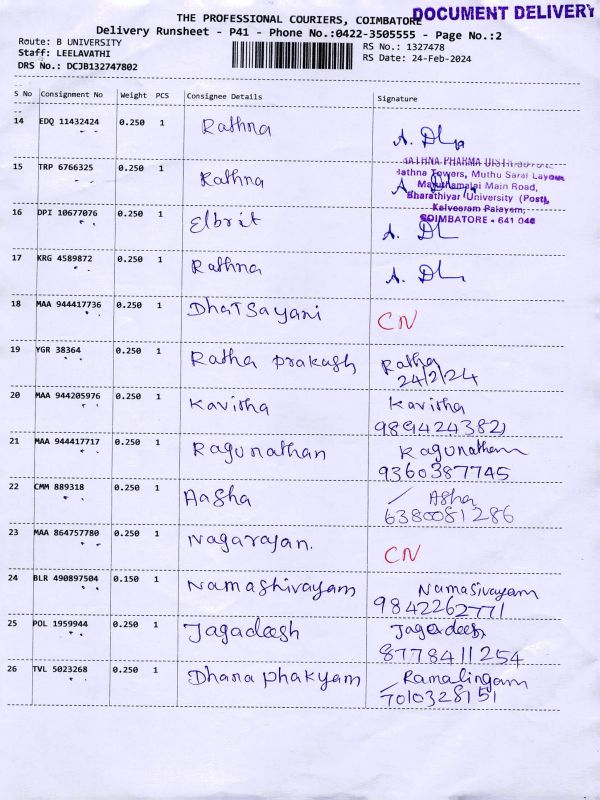 THE PROFESSIONAL COURIERS, COIMBATORE
DOCUMENT DELIVERY
Delivery Runsheet - P41 - Phone No.:0422-3505555 - Page No.:2
Route: B UNIVERSITY
RS No.: 1327478
Staff: LEELAVATHI
RS Date: 24-Feb-2024
DRS No.: DCJB132747802
S No Consignment No Weight PCS Consignee Details Signature
14 EDQ 11432424 0.250 1 Rathna
15 TRP 6766325 0.250 1 Rathna
RATHNA PHARMA DISTRIBUTORS
Rathna Towers, Muthu Saral Layout
Maruthamalai Main Road,
Bharathiyar University (Post),
Kalveeram Palayam,
COIMBATORE - 641 046
16 DPI 10677076 0.250 1 Elbrit
17 KRG 4589872 0.250 1 Rathna
18 MAA 944417736 0.250 1 Dhatsayani CN
19 YGR 38364 0.250 1 Ratha prakash Ratha
24/2/24
20 MAA 944205976 0.250 1 Kavitha Kavitha
9894243821
21 MAA 944417717 0.250 1 Ragunathan Ragunathan
9360387745
22 CMM 889318 0.250 1 Aasha Asha
6380081286
23 MAA 864757780 0.250 1 Nagarajan. CN
24 BLR 490897504 0.150 1 Namashivayam Namasivayam
9842262771
25 POL 1959944 0.250 1 Jagadeesh Jagadeesh
8778411254
26 TVL 5023268 0.250 1 Dhana phakyam Ramalingam
7010328151